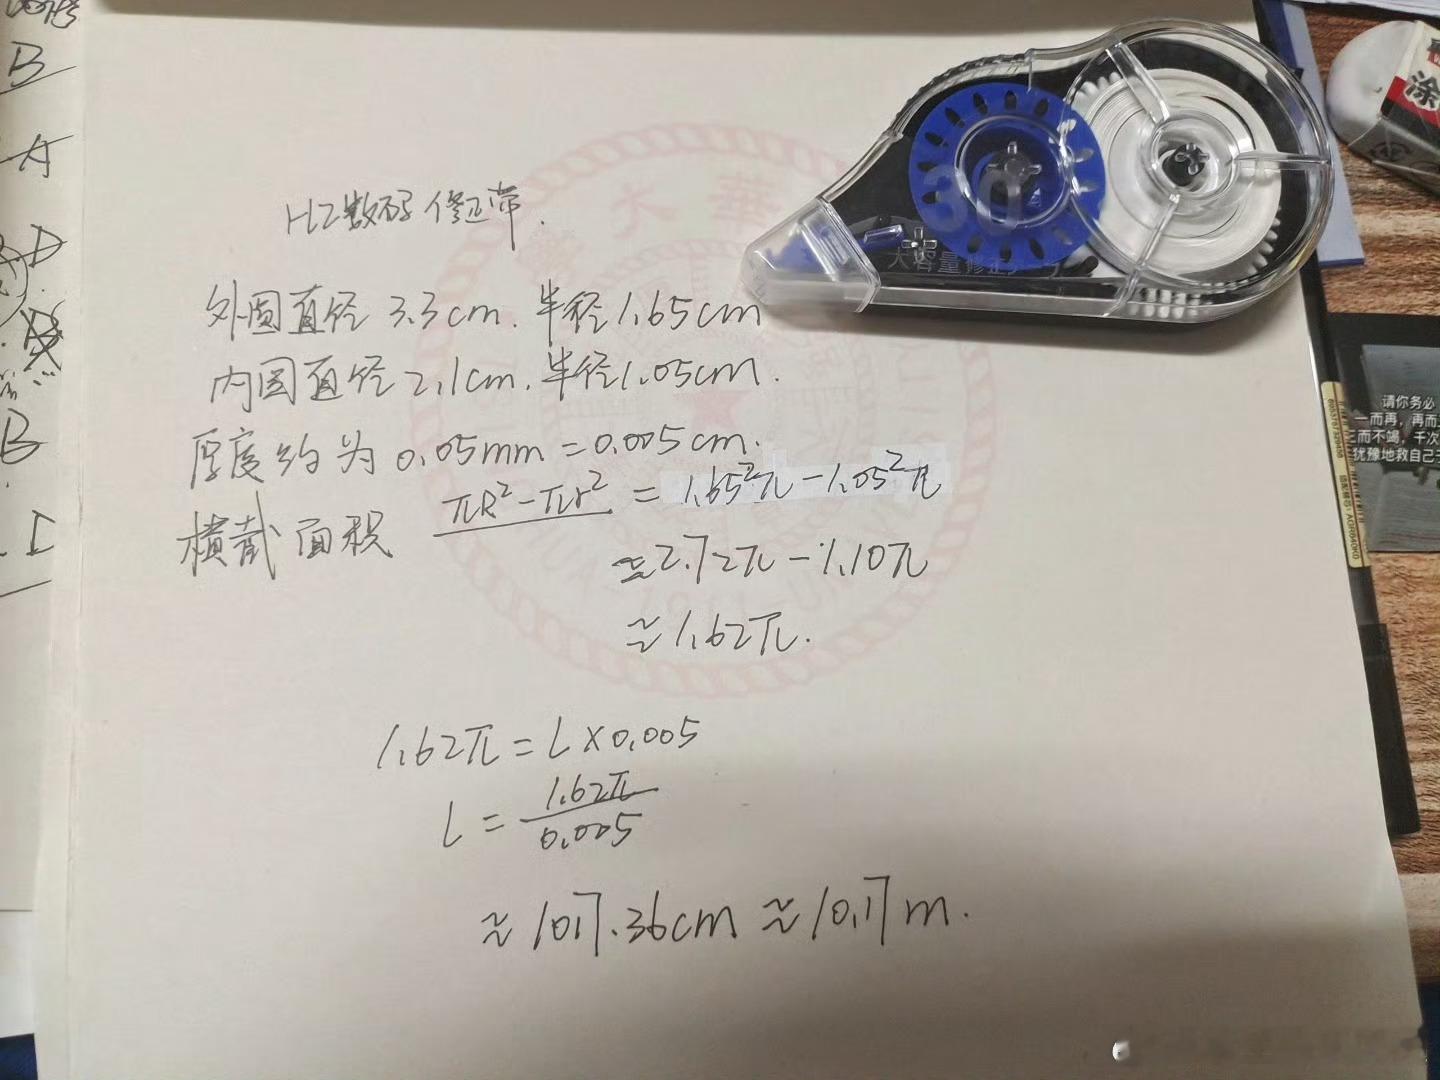 B
A
D
B
HZ数码修正带.
外圆直径3.3cm.半径1.65cm
内圆直径2.1cm.半径1.05cm.
厚度约为0.05mm=0.005cm.
横截面积 πR²-πr² = 1.65²π-1.05²π
≈2.72π-1.10π
≈1.62π.
1.62π=L×0.005
L=1.62π/0.005
≈1017.36cm≈10.17m.
30
大容量修正
涂
请你务必
一而再,再而三
三而不竭,千次
犹豫地救自己于
大華